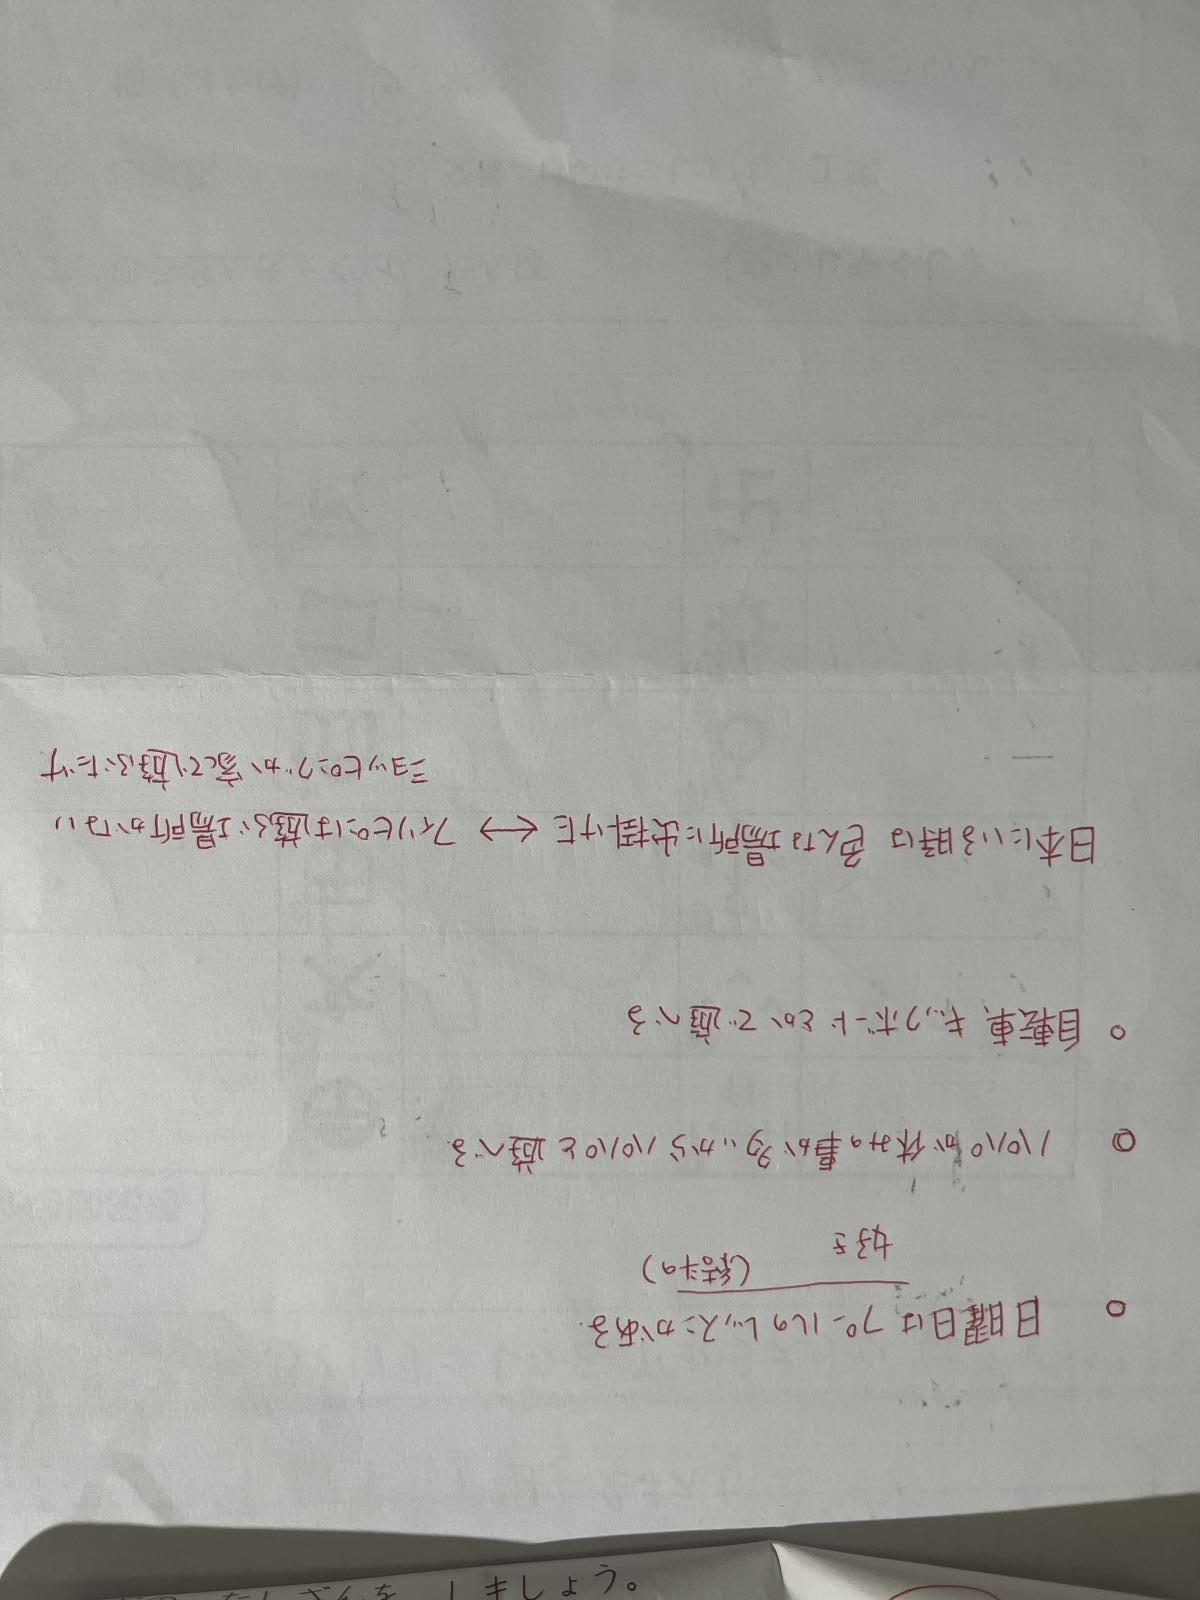 ○ 日曜日は プールの レッスンがある.
好き (結斗の)
◎ パパが 休みの事が多いから パパと遊べる
○ 自転車、キックボードとかで遊べる
日本にいる時は 色んな場所に出掛けた ←→ フィリピンは遊ぶ場所がない
ショッピングか家で遊ぶだけ
しましょう。